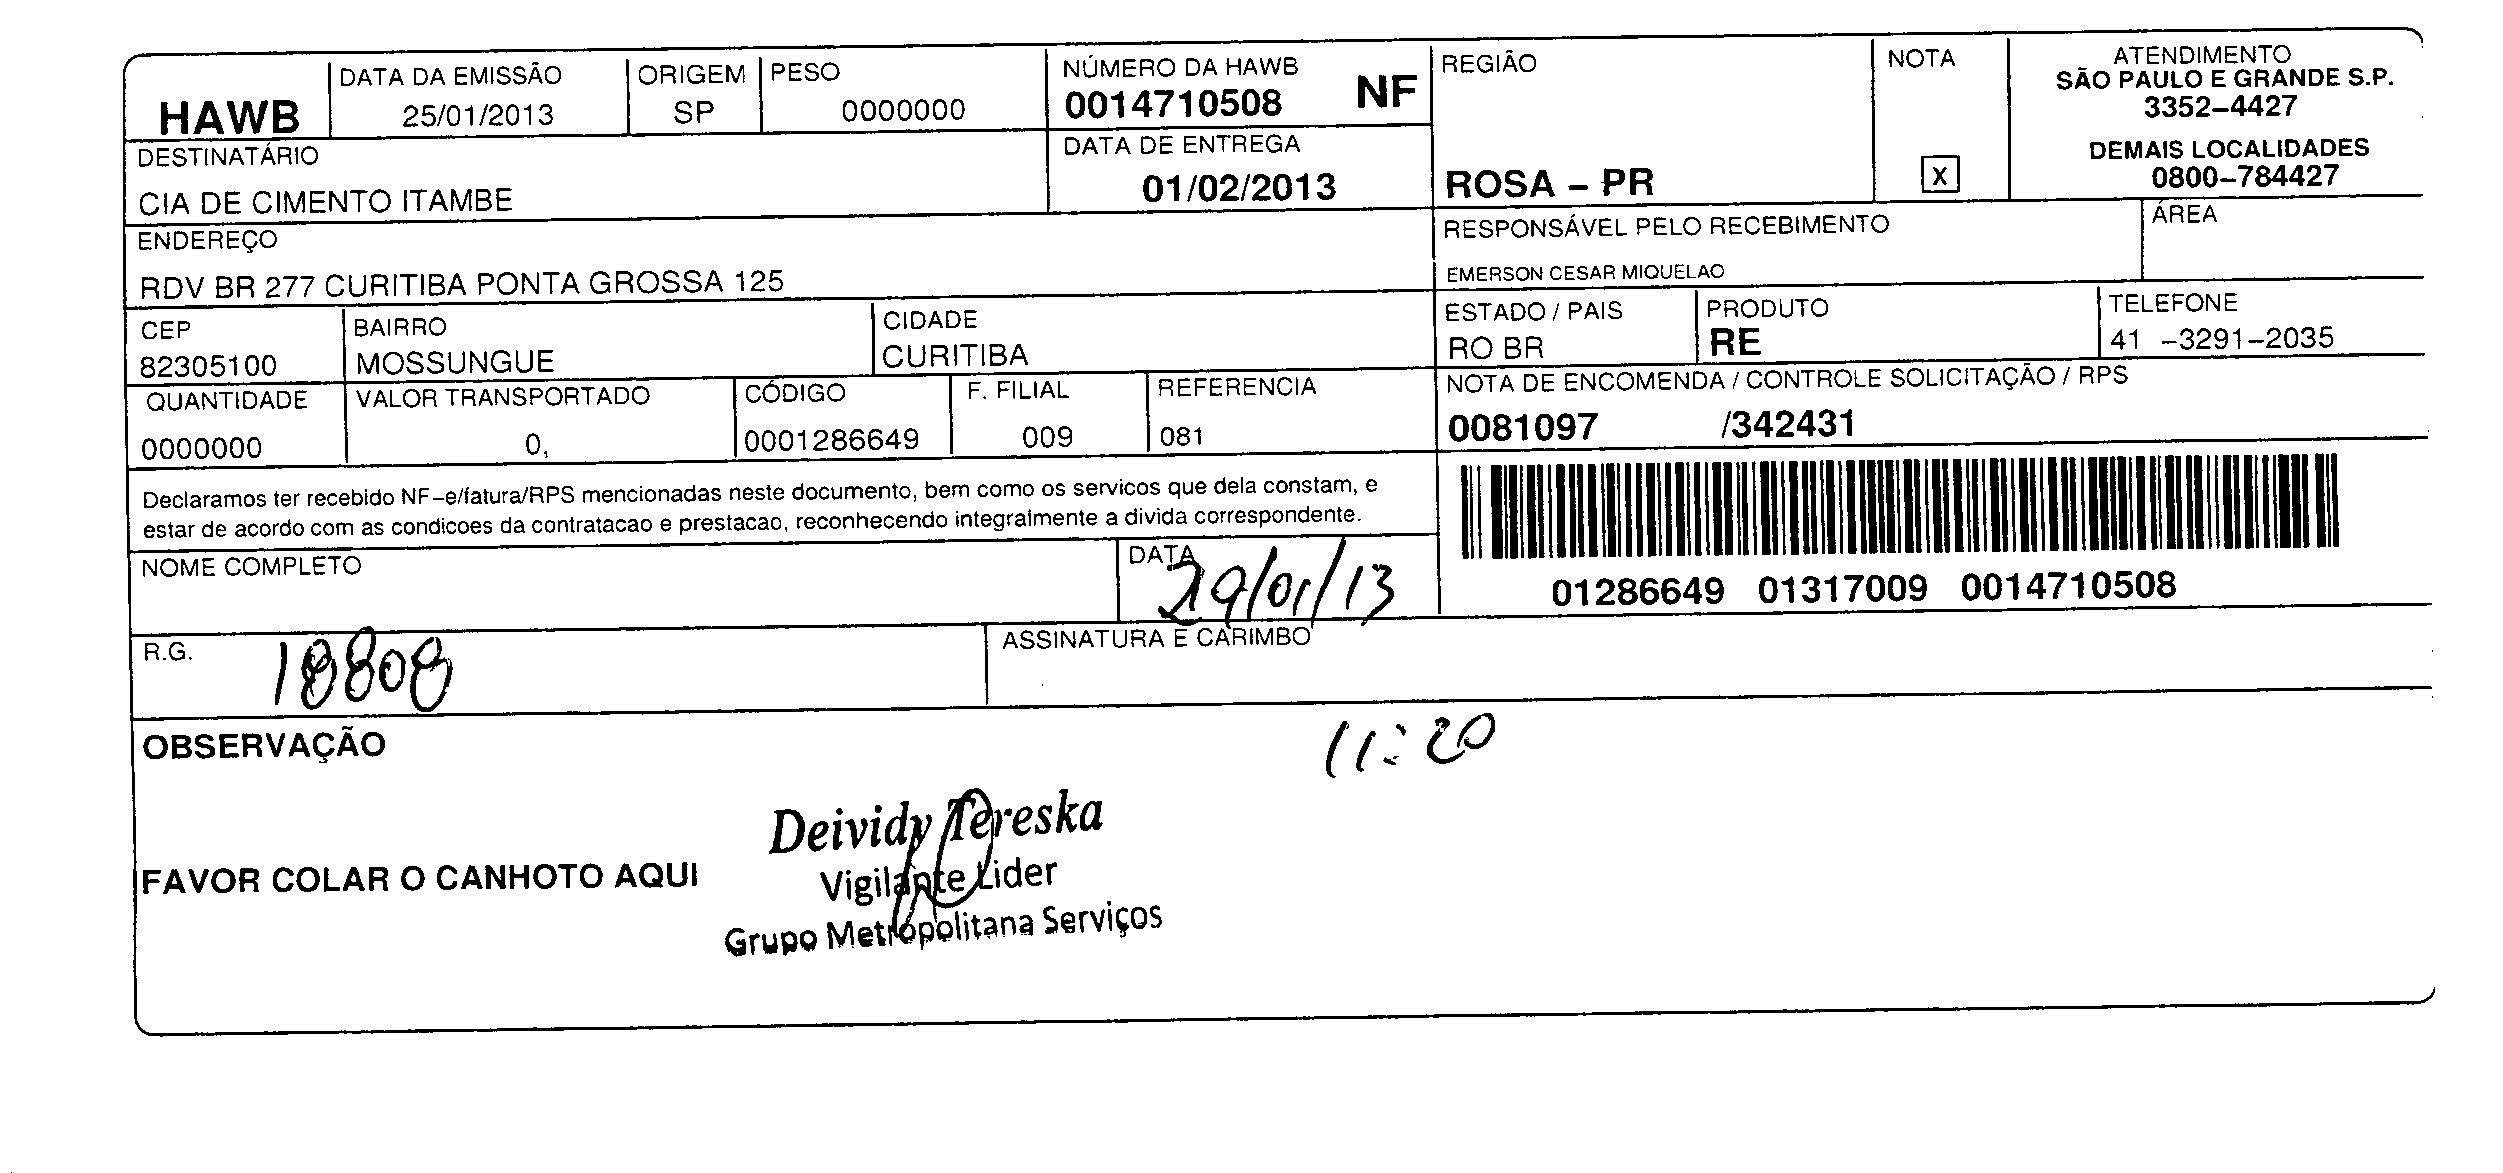 HAWB
DATA DA EMISSÃO
25/01/2013
ORIGEM
SP
PESO
0000000
NÚMERO DA HAWB
0014710508 NF
REGIÃO
ROSA – PR
NOTA
X
ATENDIMENTO
SÃO PAULO E GRANDE S.P.
3352–4427
DEMAIS LOCALIDADES
0800–784427
DESTINATÁRIO
CIA DE CIMENTO ITAMBE
DATA DE ENTREGA
01/02/2013
ENDEREÇO
RDV BR 277 CURITIBA PONTA GROSSA 125
RESPONSÁVEL PELO RECEBIMENTO
EMERSON CESAR MIQUELAO
ÁREA
CEP
82305100
BAIRRO
MOSSUNGUE
CIDADE
CURITIBA
ESTADO / PAIS
RO BR
PRODUTO
RE
TELEFONE
41 –3291–2035
QUANTIDADE
0000000
VALOR TRANSPORTADO
0,
CÓDIGO
0001286649
F. FILIAL
009
REFERENCIA
081
NOTA DE ENCOMENDA / CONTROLE SOLICITAÇÃO / RPS
0081097 /342431
Declaramos ter recebido NF–e/fatura/RPS mencionadas neste documento, bem como os servicos que dela constam, e
estar de acordo com as condicoes da contratacao e prestacao, reconhecendo integralmente a divida correspondente.
01286649 01317009 0014710508
NOME COMPLETO
DATA
29/01/13
R.G.
18808
ASSINATURA E CARIMBO
OBSERVAÇÃO
11:20
FAVOR COLAR O CANHOTO AQUI
Deividy Tereska
Vigilante Lider
Grupo Metropolitana Serviços